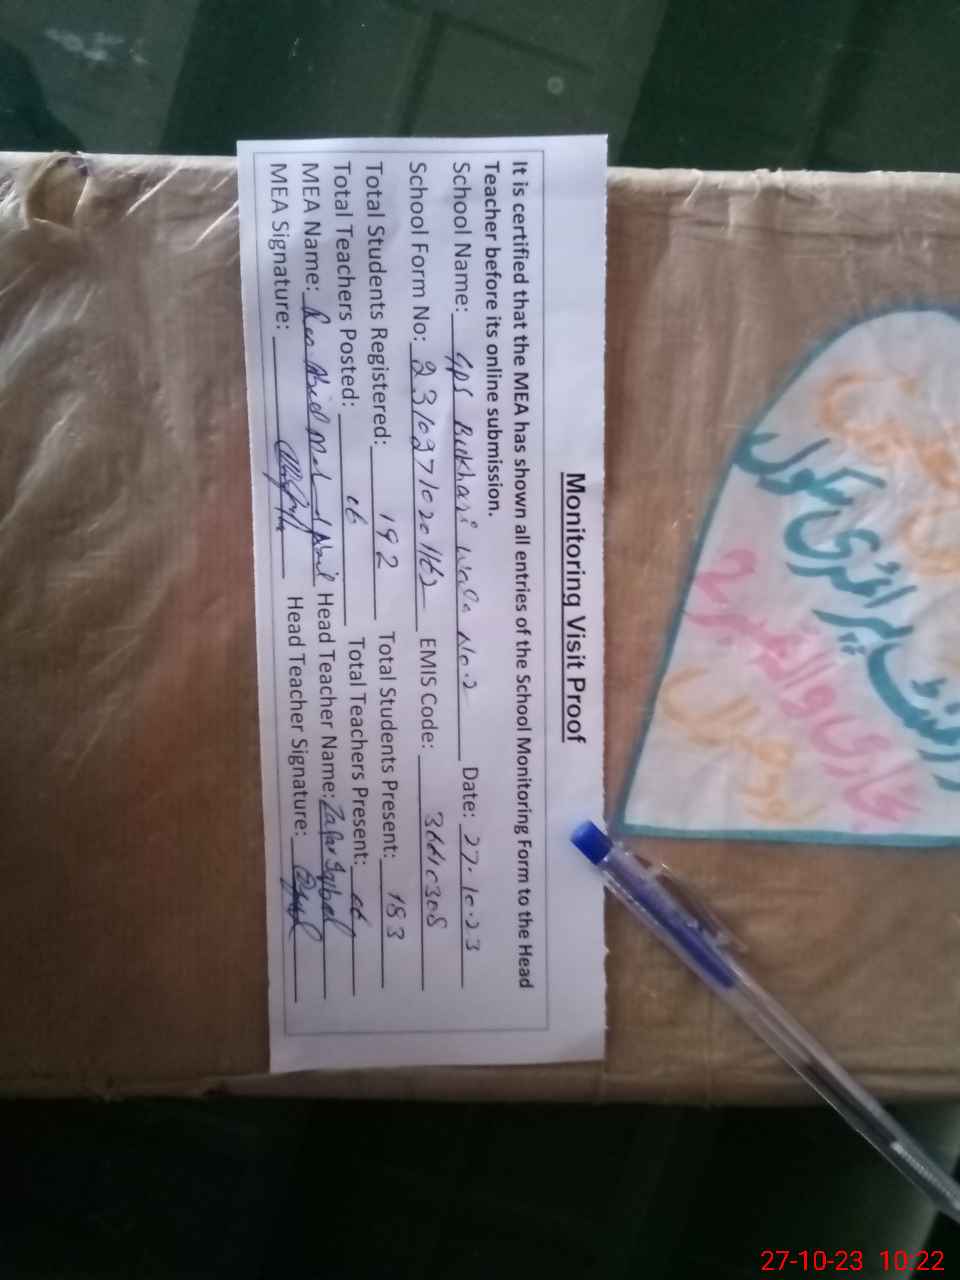 Monitoring Visit Proof
It is certified that the MEA has shown all entries of the School Monitoring Form to the Head
Teacher before its online submission.
School Name: GPS Bukhari Wala No.2 Date: 27.10.23
School Form No: EMIS Code:
Total Students Registered: 192 Total Students Present: 183
Total Teachers Posted: 06 Total Teachers Present: 06
MEA Name: Head Teacher Name: Zafar Iqbal
MEA Signature: Head Teacher Signature:
پرائمری سکول
27-10-23 10:22